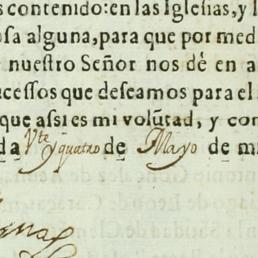 s contenido: en las Iglesias, y l
osa alguna, para que por med
nuestro Señor nos dé en a
ucessos que deseamos para el
que assi es mi volũtad, y con
da Vte y quatro de Mayo de m